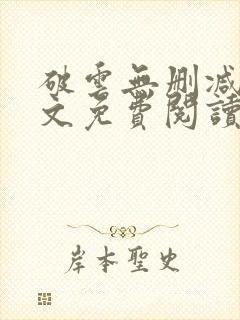 破雲無刪減
文免費閱讀
岸本聖史